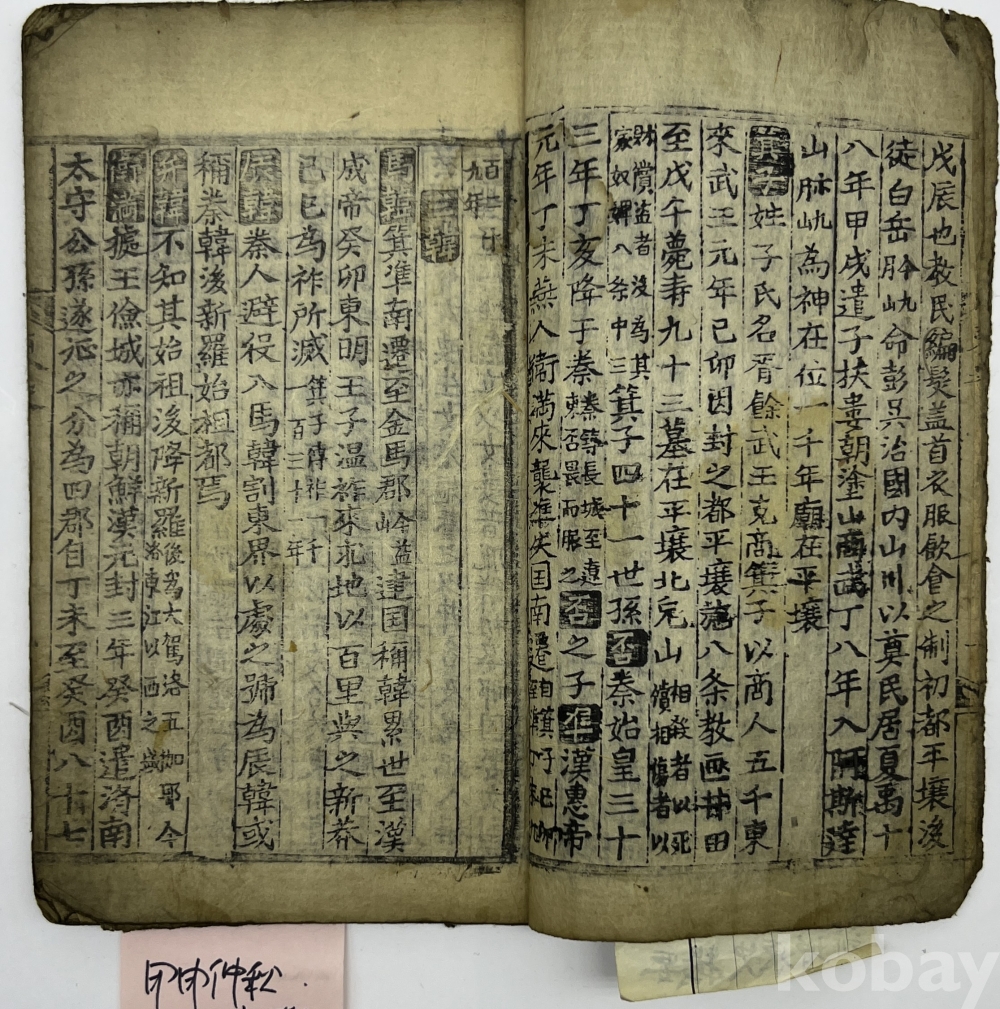 戊辰也教民編髮盖首衣服飮食之制初都平壤後
徒白岳月今九山山命彭吳治國内山川以奠民居夏禹十
八年甲戌遣子扶婁朝塗山商武丁八年入阿斯達
山月今九山山為神在位一千年廟在平壤
箕子姓子氏名胥餘武王克商箕子以商人五千東
來武王元年己卯因封之都平壤施八条教画井田
至戊午薨壽九十三墓在平壤北兔山相殺者以死償相傷者以
財賞盗者没為其家奴婢八条中三箕子四十一世孫否秦始皇三十
三年丁亥降于秦秦築長城至遼東否畏而服之否之子準漢惠帝
元年丁未燕人衛満來襲準失国南遷自箕子己卯至丁未九
百二十九年
三韓
馬韓箕準南遷至金馬郡今益山建国稱韓累世至漢
成帝癸卯東明王子温祚來求地以百里與之新莽
己巳為祚所滅箕子傳祚一千一百三十一年
辰韓秦人避役入馬韓割東界以處之號為辰韓或
稱秦韓後新羅始祖都焉
弁韓不知其始祖後降新羅後為大駕洛五伽耶今洛東江以西之域
衛満據王儉城亦稱朝鮮漢元封三年癸酉遣海南
太守公孫遂定之分為四郡自丁未至癸酉八十七
甲申仲秋
kobay